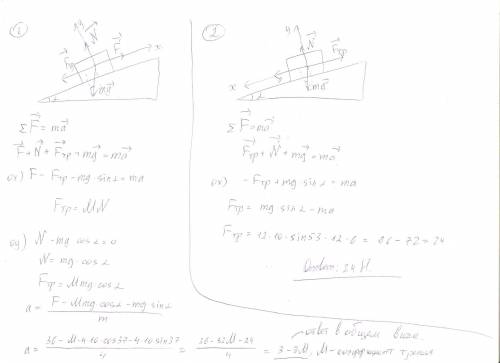 ①
y
N
F
x
Fтр
mg
α
ΣF = ma
F + N + Fтр + mg = ma
ox) F - Fтр - mg · sinα = ma
Fтр = MN
oy) N - mg · cosα = 0
N = mg · cosα
Fтр = Mmg · cosα
a = F - Mmg · cosα - mg sinα / m
a = 36 - M·4·10·cos37 - 4·10 sin37 / 4 = 36 - 32M - 24 / 4 = 3 - 8M, M - коэффициент трения
ответ в общем виде
②
y
N
Fтр
x
α
ΣF = ma
Fтр + N + mg = ma
ox) - Fтр + mg sinα = ma
Fтр = mg sinα - ma
Fтр = 12 · 10 · sin53 - 12 · 6 = 96 - 72 = 24
Ответ: 24 Н.